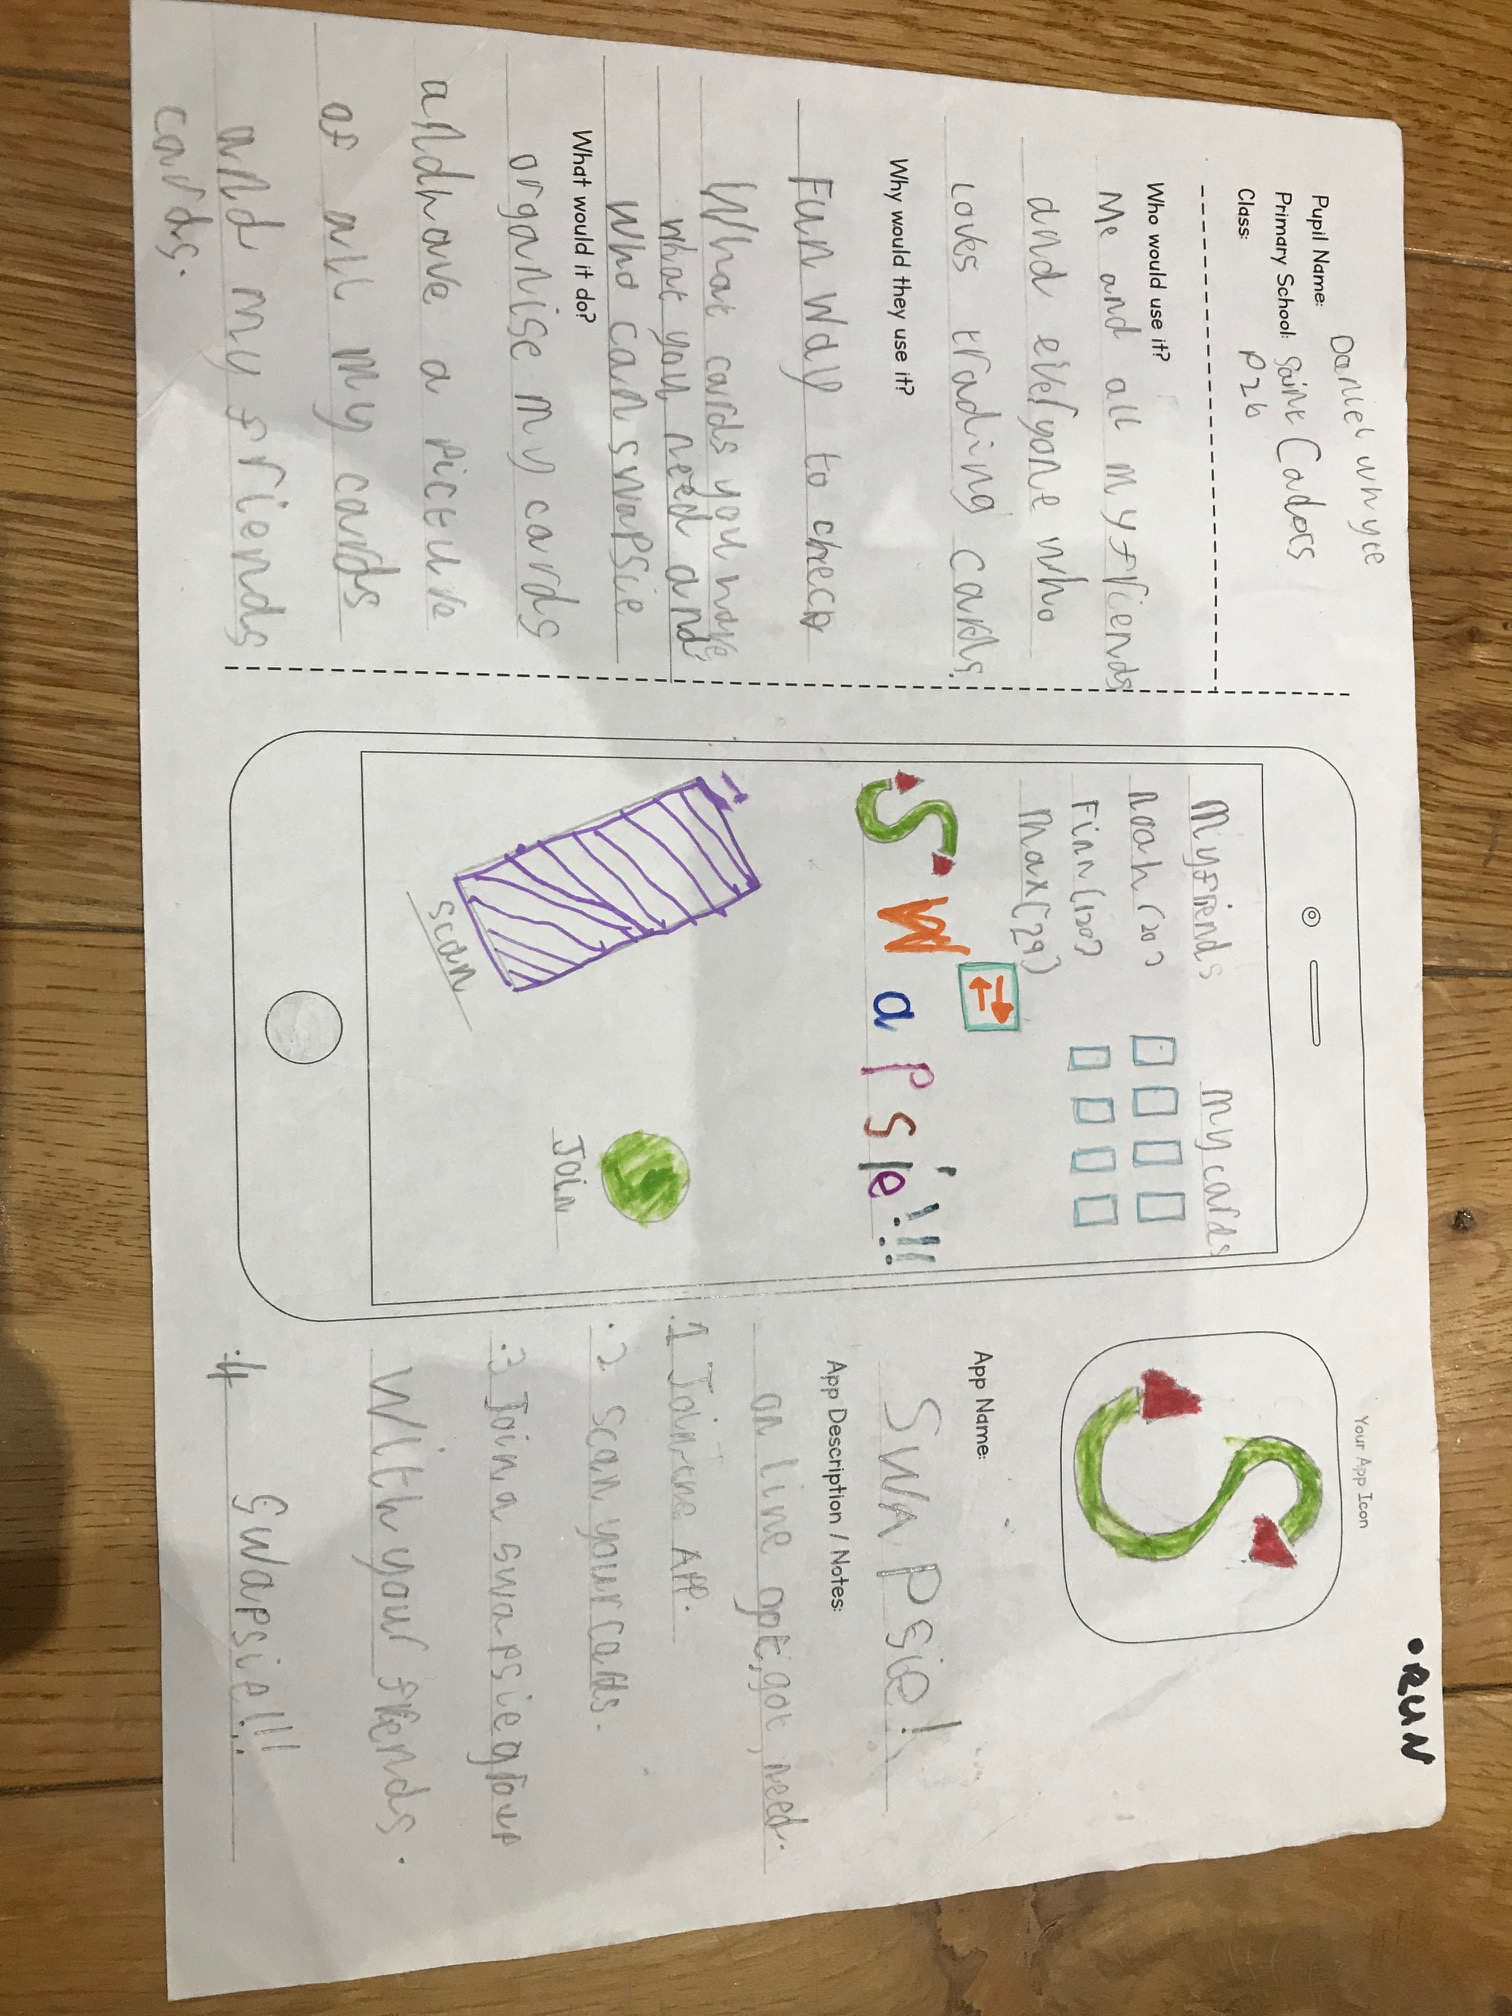 Pupil Name: Daniel Whyte
Primary School: Saint Cadocs
Class: P2b
Who would use it?
Me and all my friends
and everyone who
Loves trading cards.
Why would they use it?
Fun Way to check
What cards you have
what you need and
who can swapsie
What would it do?
organise my cards
and have a picture
of all my cards
and my friends
cards.
My friends
noah (20)
Finn (120)
Max (29)
my cards
Swapsie!!!
scan
Join
Your App Icon
S
• RUN
App Name:
SWAPSie!
App Description / Notes:
on line got, got, need.
.1 Join App.
.2 scan your cards.
.3 Join a swapsie group
With your friends.
.4 Swapsie!!!